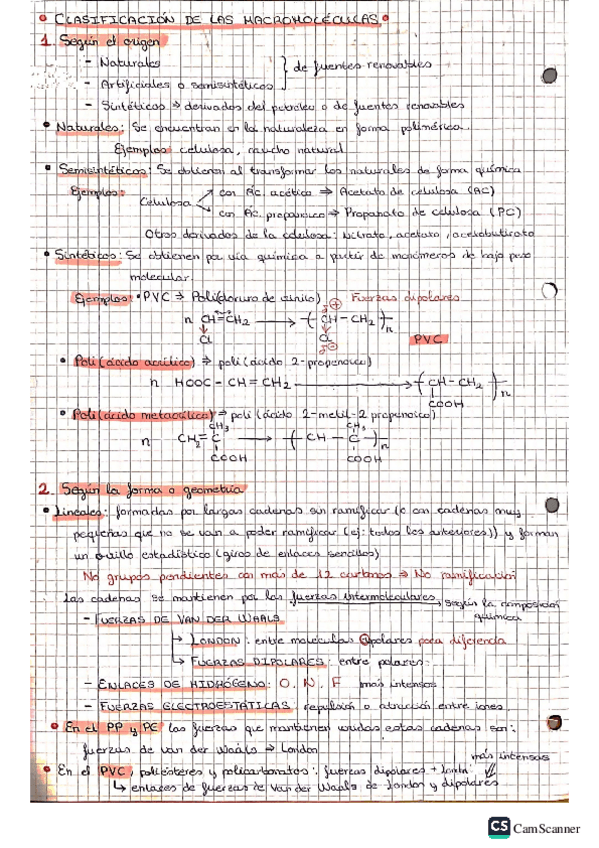 CLASIFICACIÓN DE LAS MACROMOLÉCULAS
1. Según el origen
- Naturales
} de fuentes renovables
- Artificiales o semisintéticos
- Sintéticos ⇒ derivados del petróleo o de fuentes renovables
• Naturales: Se encuentran en la naturaleza en forma polimérica.
Ejemplos: celulosa, mucho natural
• Semisintéticos: Se obtienen al transformar los naturales de forma química
Ejemplos: Celulosa
con Ác. acético ⇒ Acetato de celulosa (AC)
con Ác. propanoico ⇒ Propanato de celulosa (PC)
Otros derivados de la celulosa: Nitrato, acetato, acetobutirato
• Sintéticos: Se obtienen por vía química a partir de monómeros de bajo peso
molecular.
Ejemplos: • PVC ⇒ Poli(cloruro de vinilo) Fuerzas dipolares
n CH=CH2 → -(CH-CH2)-n
Cl Cl PVC
• Poli(ácido acrílico) ⇒ poli(ácido 2-propenoico)
n HOOC-CH=CH2 → -(CH-CH2)-n
COOH
• Poli(ácido metacrílico) ⇒ poli(ácido 2-metil-2 propenoico)
CH3 CH3
n CH2=C → -(CH-C-)n
COOH COOH
2. Según la forma o geometría
• Lineales: formadas por largas cadenas sin ramificar (o con cadenas muy
pequeñas que no se van a poder ramificar (ej: todos los anteriores)) y forman
un ovillo estadístico (giros de enlaces sencillos)
No grupos pendientes con más de 12 carbonos ⇒ No ramificación
Las cadenas se mantienen por las fuerzas intermoleculares → según la composición
química
- FUERZAS DE VAN DER WAALS
↳ LONDON: entre moléculas apolares poca diferencia
↳ FUERZAS DIPOLARES: entre polares.
- ENLACES DE HIDRÓGENO: O, N, F más intensos
- FUERZAS ELECTROESTÁTICAS: repulsión o atracción entre iones.
• En el PP y PE las fuerzas que mantienen unidas estas cadenas son:
fuerzas de van der Waals → London
más intensas
• En el PVC, poliésteres y policarbonatos: fuerzas dipolares + London
↳ enlaces de fuerzas de Van der Waals de London y dipolares
CS CamScanner